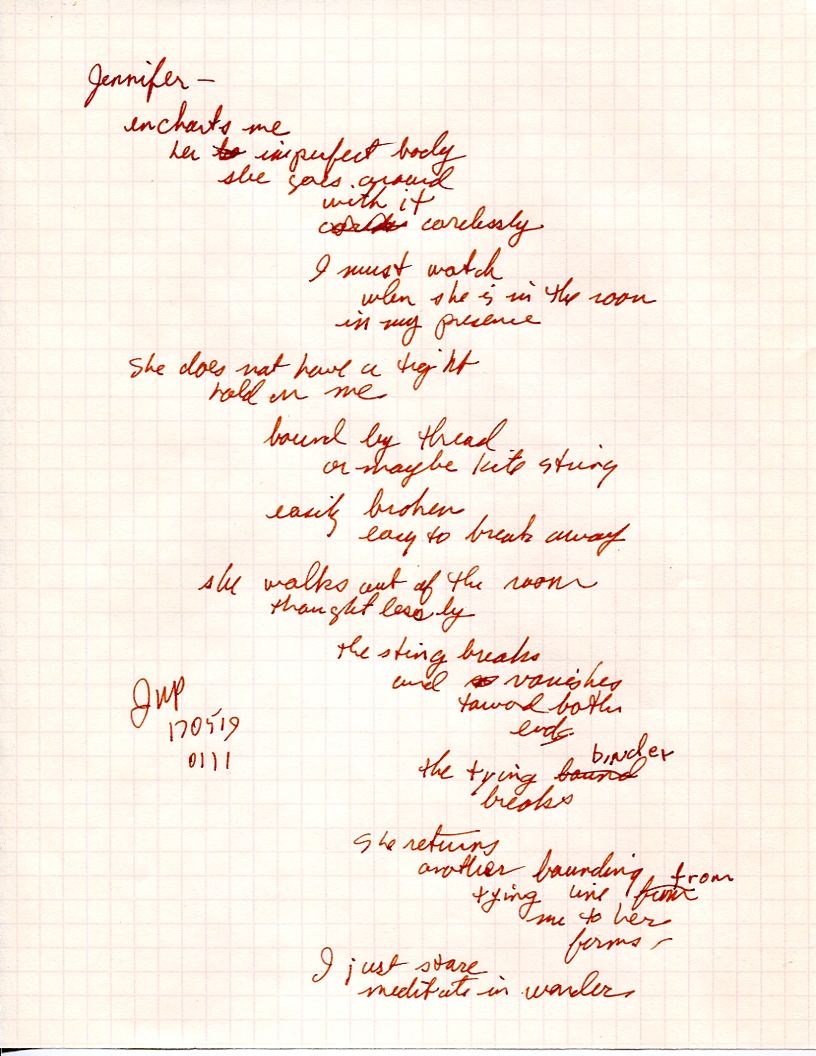 Jennifer —
encharts me
her to imperfect body
she goes around
with it
carelessly
I must watch
when she is in the room
in my presence
She does not have a tight
hold on me
bound by thread
or maybe kite string
easily broken
easy to break away
she walks out of the room
thoughtlessly
the sting breaks
and so vanishes
toward both
ends
JWP
170519
0111
binder
the tying bound
breaks
She returns
another bounding
from
tying line from
me to her
forms —
I just stare
meditate in wonder